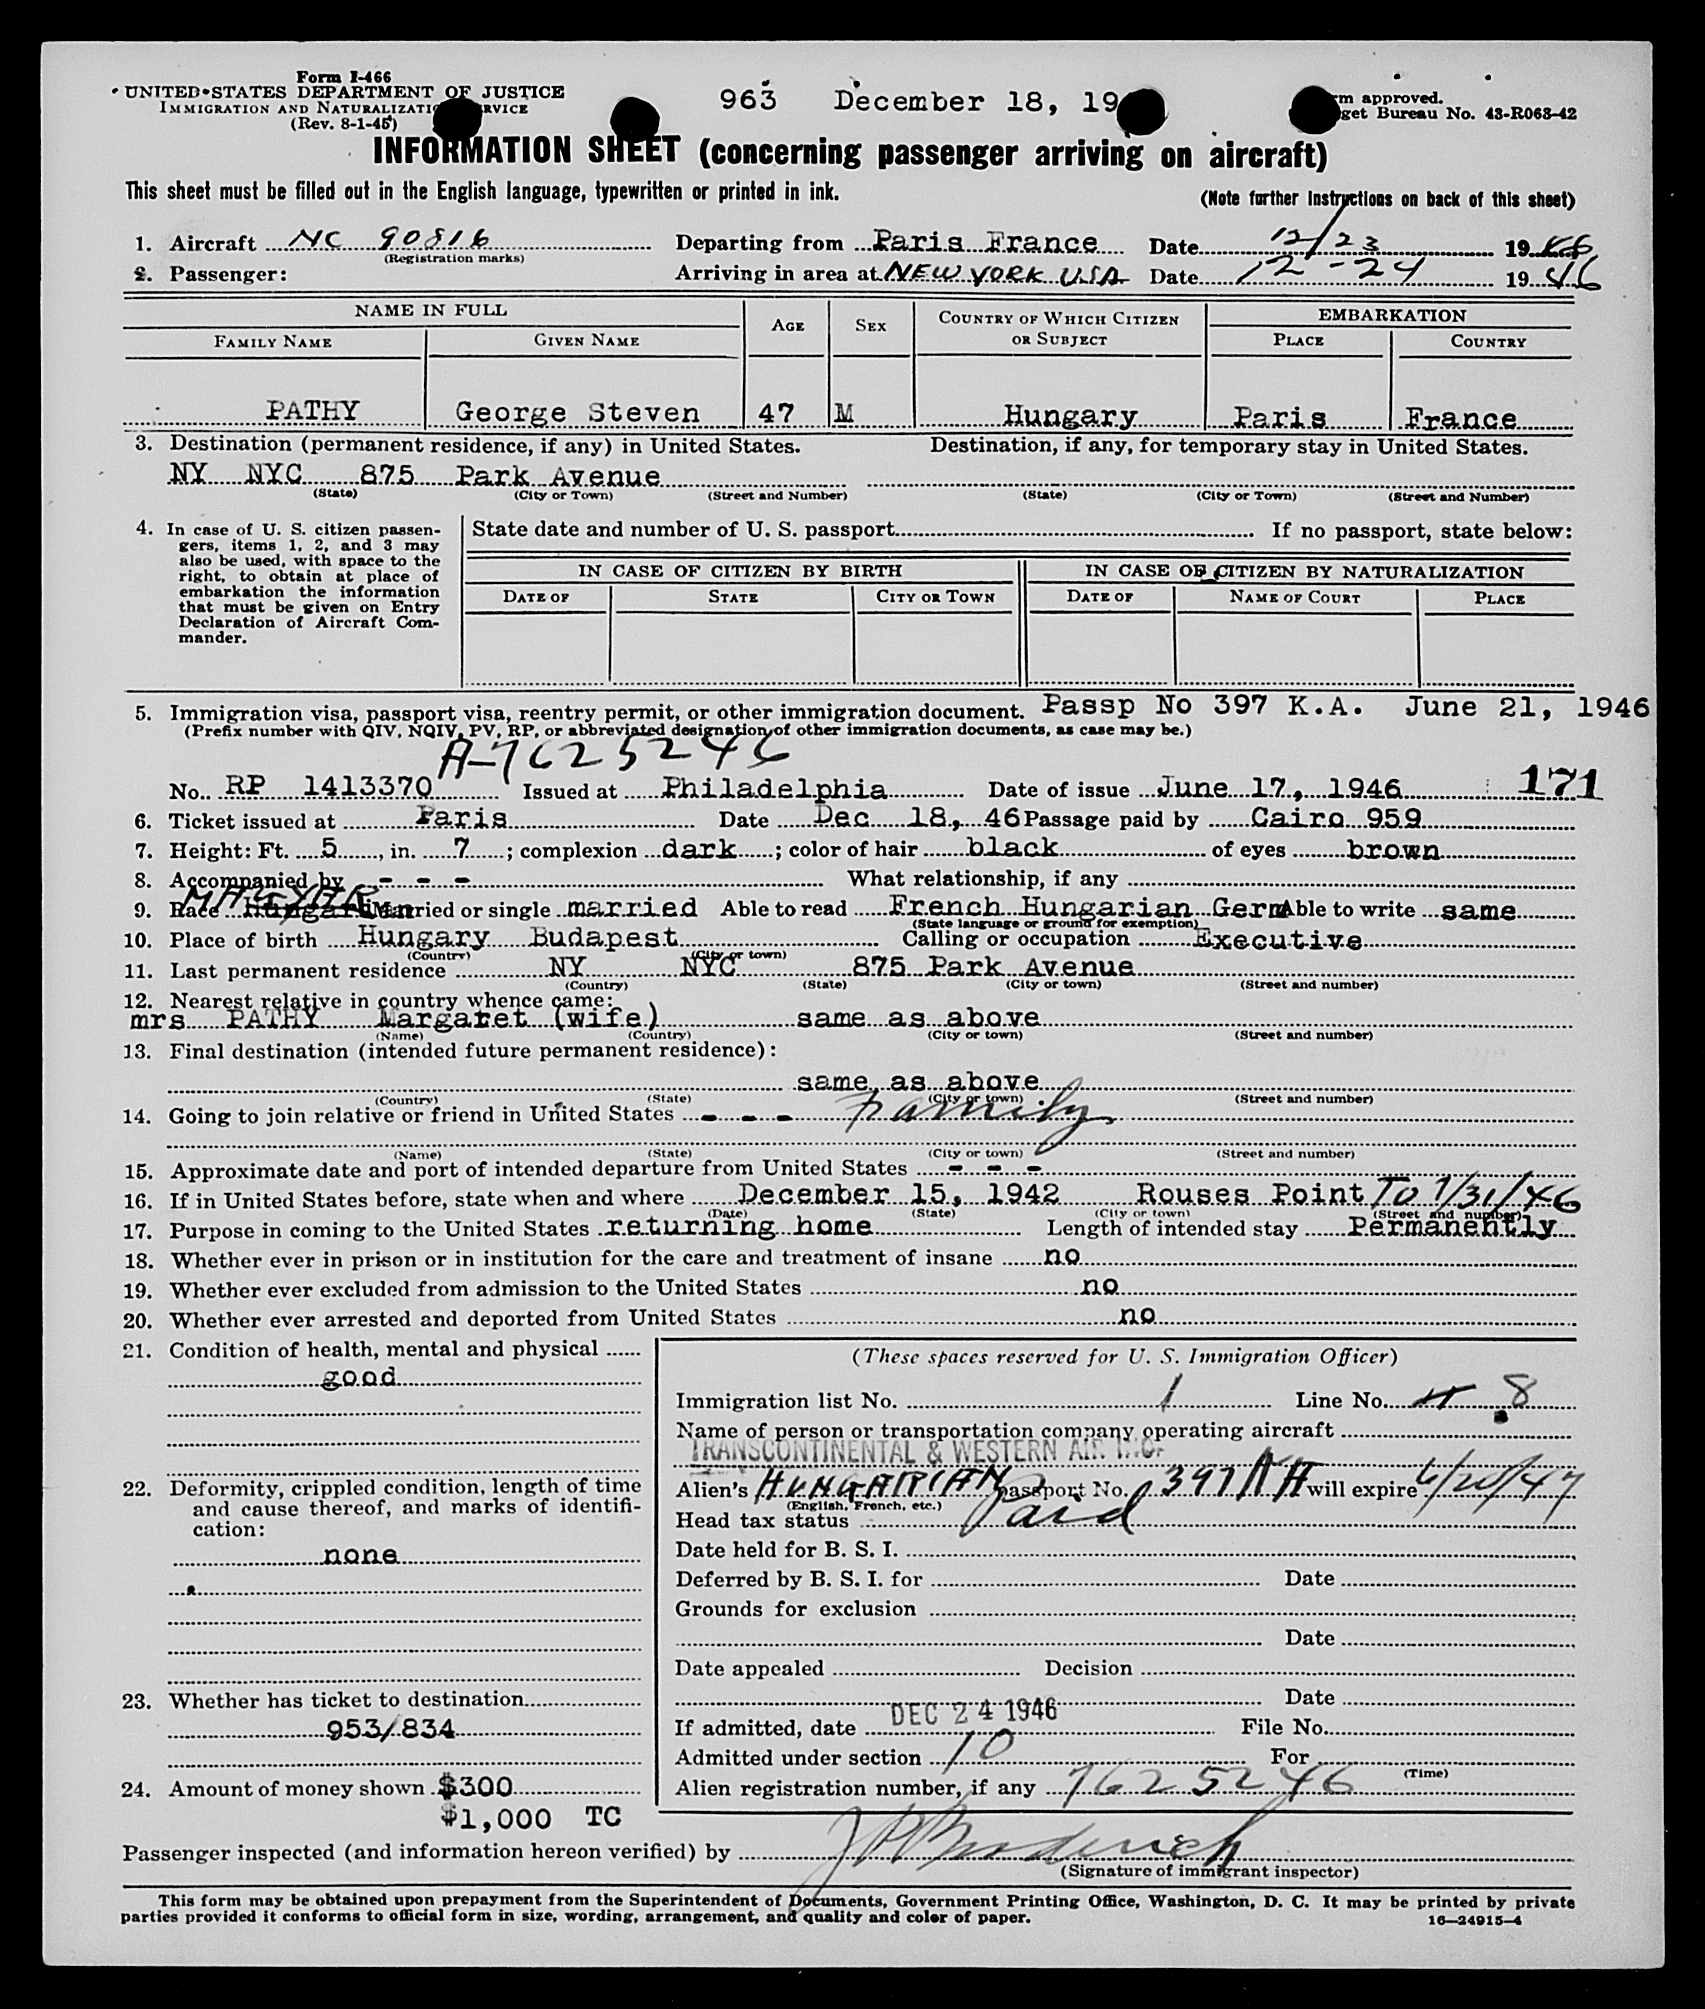 Form I-466
UNITED STATES DEPARTMENT OF JUSTICE
IMMIGRATION AND NATURALIZATION SERVICE
(Rev. 8-1-45)
963 December 18, 19
Form approved.
Budget Bureau No. 43-R063-42
INFORMATION SHEET (concerning passenger arriving on aircraft)
This sheet must be filled out in the English language, typewritten or printed in ink.
(Note further instructions on back of this sheet)
1. Aircraft NC 90816 Departing from Paris France Date 12/23 1946
(Registration marks)
2. Passenger: Arriving in area at NEW YORK USA Date 12-24 1946
NAME IN FULL AGE SEX COUNTRY OF WHICH CITIZEN OR SUBJECT EMBARKATION
FAMILY NAME GIVEN NAME PLACE COUNTRY
PATHY George Steven 47 M Hungary Paris France
3. Destination (permanent residence, if any) in United States. Destination, if any, for temporary stay in United States.
NY NYC 875 Park Avenue
(State) (City or Town) (Street and Number) (State) (City or Town) (Street and Number)
4. In case of U. S. citizen passengers, items 1, 2, and 3 may also be used, with space to the right, to obtain at place of embarkation the information that must be given on Entry Declaration of Aircraft Commander.
State date and number of U. S. passport If no passport, state below:
IN CASE OF CITIZEN BY BIRTH IN CASE OF CITIZEN BY NATURALIZATION
DATE OF STATE CITY OR TOWN DATE OF NAME OF COURT PLACE
5. Immigration visa, passport visa, reentry permit, or other immigration document. Passp No 397 K.A. June 21, 1946
(Prefix number with QIV, NQIV, PV, RP, or abbreviated designation of other immigration documents, as case may be.)
A-7625246
No. RP 1413370 Issued at Philadelphia Date of issue June 17, 1946 171
6. Ticket issued at Paris Date Dec 18, 46 Passage paid by Cairo 959
7. Height: Ft. 5, in. 7; complexion dark; color of hair black of eyes brown
8. Accompanied by - - - What relationship, if any
MAGYAR
9. Race Hungarian Married or single married Able to read French Hungarian Germ Able to write same
(State language or ground for exemption)
10. Place of birth Hungary Budapest Calling or occupation Executive
(Country) (City or town)
11. Last permanent residence NY NYC 875 Park Avenue
(Country) (State) (City or town) (Street and number)
12. Nearest relative in country whence came:
mrs PATHY Margaret (wife) same as above
(Name) (Country) (City or town) (Street and number)
13. Final destination (intended future permanent residence):
same as above
(Country) (State) (City or town) (Street and number)
14. Going to join relative or friend in United States - - - Family
(Name) (State) (City or town) (Street and number)
15. Approximate date and port of intended departure from United States - - -
16. If in United States before, state when and where December 15, 1942 Rouses Point TO 7/31/46
(Date) (State) (City or town) (Street and number)
17. Purpose in coming to the United States returning home Length of intended stay Permanently
18. Whether ever in prison or in institution for the care and treatment of insane no
19. Whether ever excluded from admission to the United States no
20. Whether ever arrested and deported from United States no
21. Condition of health, mental and physical
good
22. Deformity, crippled condition, length of time and cause thereof, and marks of identification:
none
23. Whether has ticket to destination
953/834
24. Amount of money shown $300
$1,000 TC
(These spaces reserved for U. S. Immigration Officer)
Immigration list No. 1 Line No. 8
Name of person or transportation company operating aircraft
TRANSCONTINENTAL & WESTERN AIR INC.
Alien's HUNGARIAN passport No. 397 will expire 6/20/47
(English, French, etc.)
Head tax status Paid
Date held for B. S. I.
Deferred by B. S. I. for Date
Grounds for exclusion
Date
Date appealed Decision
Date
If admitted, date DEC 24 1946 File No.
Admitted under section 10 For
(Time)
Alien registration number, if any 7625246
Passenger inspected (and information hereon verified) by
(Signature of immigrant inspector)
This form may be obtained upon prepayment from the Superintendent of Documents, Government Printing Office, Washington, D. C. It may be printed by private
parties provided it conforms to official form in size, wording, arrangement, and quality and color of paper.
16-24915-4